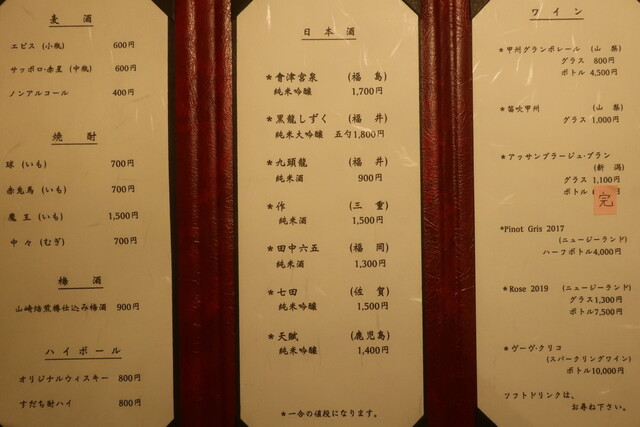 麦酒
エビス (小瓶) 600円
サッポロ・赤星 (中瓶) 600円
ノンアルコール 400円
焼酎
球 (いも) 700円
赤兎馬 (いも) 700円
魔王 (いも) 1,500円
中々 (むぎ) 700円
梅酒
山崎焙煎樽仕込み梅酒 900円
ハイボール
オリジナルウィスキー 800円
すだち酎ハイ 800円
日本酒
*會津宮泉 (福島)
純米吟醸 1,700円
*黒龍しずく (福井)
純米大吟醸 五勺1,800円
*九頭龍 (福井)
純米酒 900円
*作 (三重)
純米酒 1,500円
*田中六五 (福岡)
純米酒 1,300円
*七田 (佐賀)
純米吟醸 1,500円
*天賦 (鹿児島)
純米吟醸 1,400円
*一合の値段になります。
ワイン
*甲州グランポレール (山梨)
グラス 800円
ボトル 4,500円
*笛吹甲州 (山梨)
グラス 1,000円
*アッサンブラージュ・ブラン
(新潟)
グラス 1,100円
ボトル 円
完
*Pinot Gris 2017
(ニュージーランド)
ハーフボトル4,000円
*Rose 2019 (ニュージーランド)
グラス1,300円
ボトル7,500円
*ヴーヴ・クリコ
(スパークリングワイン)
ボトル10,000円
ソフトドリンクは、
お尋ね下さい。